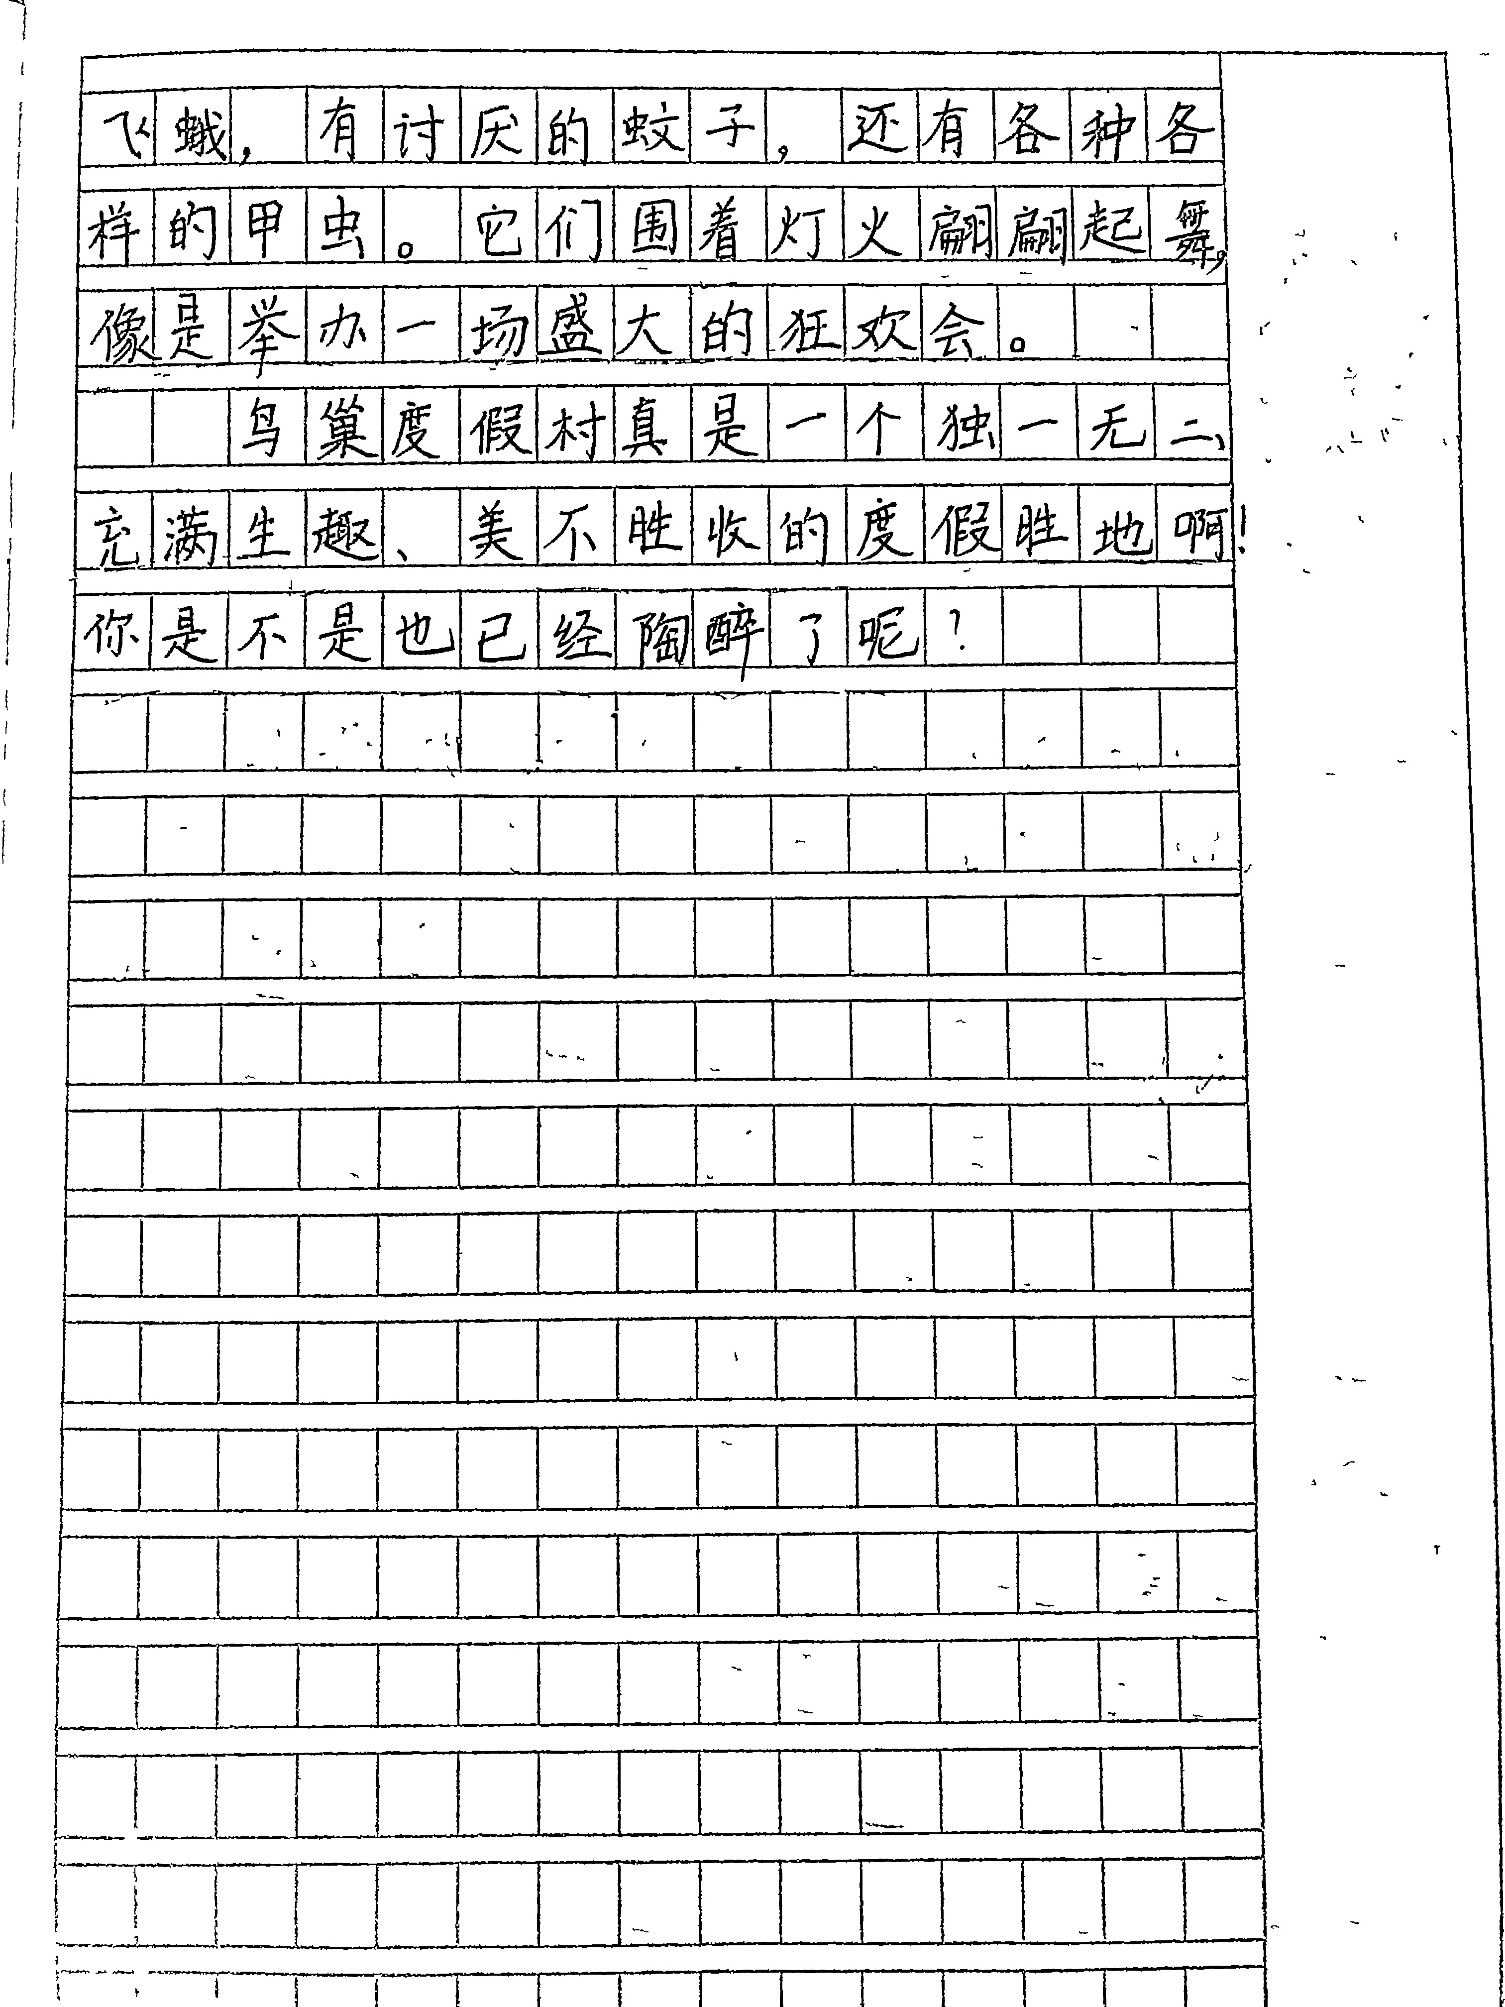 飞蛾，有讨厌的蚊子，还有各种各
样的甲虫。它们围着灯火翩翩起舞，
像是举办一场盛大的狂欢会。
鸟巢度假村真是一个独一无二、
充满生趣、美不胜收的度假胜地啊！
你是不是也已经陶醉了呢？